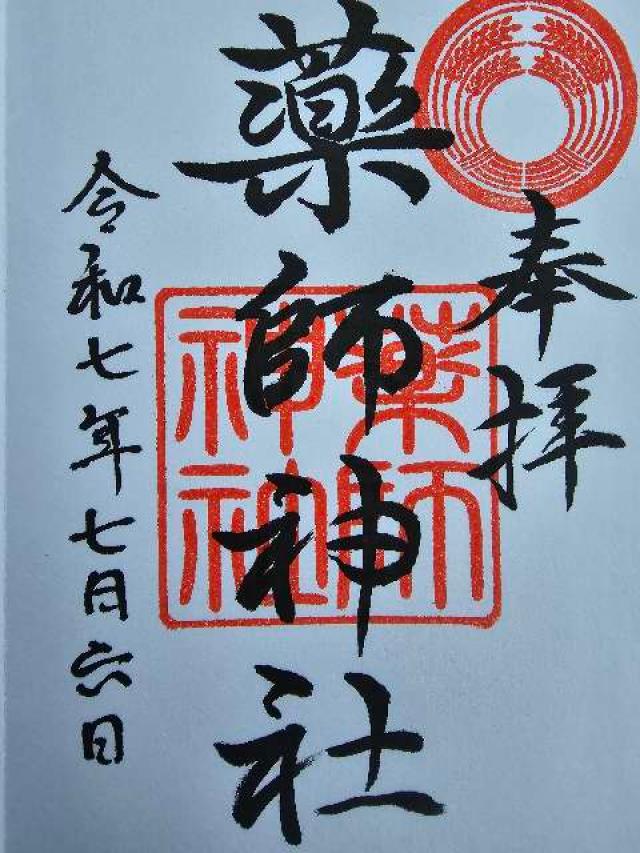 奉拝
薬師神社
薬師
神社
令和七年七月六日